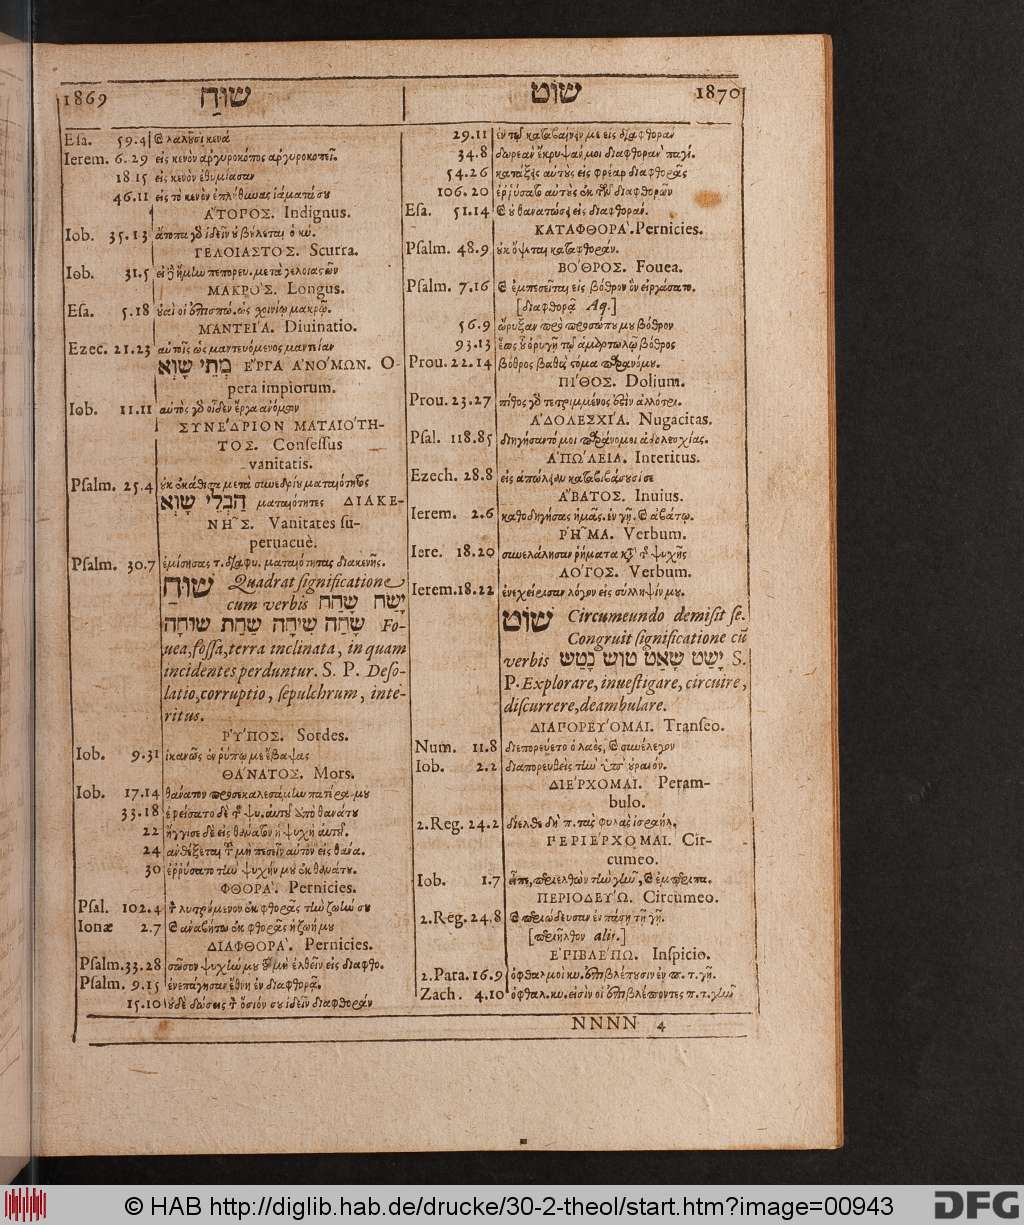 1869 שוּחַ
Esa. 59.4 λαλοῦσι κενά
Ierem. 6.29 εἰς κενὸν ἀργυροκόπος ἀργυροκοπεῖ.
18 15 εἰς κενὸν ἐθυμίασαν
46.11 εἰς τὸ κενὸν ἐπλήθυνας ἰάματά σου
ἌΤΟΠΟΣ. Indignus.
Iob. 35.13 ἄτοπα
ΓΕΛΟΙΑΣΤΟΣ. Scurra.
Iob. 31.5 πεπορευ. μετὰ γελοιαστῶν
ΜΑΚΡΟΣ. Longus.
Esa. 5.18 οὐαὶ οἱ ἐπισπώ. ὡς χοινίῳ μακρῷ.
ΜΑΝΤΕΙΑ. Diuinatio.
Ezec. 21.23 αὐτοῖς ὡς μαντευόμενος μαντείαν
מְתֵי שָׁוְא ἜΡΓΑ ἈΝΟΜΩΝ. O-
pera impiorum.
Iob. 11.11 αὐτὸς γὸ οἶδεν ἔργα ἀνόμων
ΣΥΝΕΔΡΙΟΝ ΜΑΤΑΙΟΤΗ-
ΤΟΣ. Consessus
vanitatis.
Psalm. 25.4 οὐκ ἐκάθισα μετὰ συνεδρίου ματαιότητος
הַבְלֵי שָׁוְא ματαιότητες ΔΙΑΚΕ-
ΝΗΣ. Vanitates su-
peruacuè.
Psalm. 30.7 ἐμίσησας τ. διαφυ. ματαιότητας διακενῆς.
שׁוּחַ Quadrat significatione
cum verbis יָשַׁח שָׁחַח
שָׁחָה שִׁיחָה שַׁחַת שׁוּחָה Fo-
uea, fossa, terra inclinata, in quam
incidentes perduntur. S. P. Deso-
latio, corruptio, sepulchrum, inte-
ritus.
ῬΥΠΟΣ. Sordes.
Iob. 9.31 ἱκανῶς ἐν ῥύπῳ με ἔβαψας
ΘΑΝΑΤΟΣ. Mors.
Iob. 17.14 θάνατον προσεκαλεσάμην πατέρα μου
33.18 ἐφείσατο δὲ τ ψυ. αὐτοῦ ἀπὸ θανάτου
22 ἤγγισε δὲ εἰς θάνατον ἡ ψυχὴ αὐτοῦ.
24 ἀνθέξεται τ μὴ πεσεῖν αὐτὸν εἰς θανα.
30 ἐρρύσατο τὴν ψυχήν μου ἐκ θανάτου.
ΦΘΟΡΑ. Pernicies.
Psal. 102.4 τ λυτρούμενον ἐκ φθορᾶς τὴν ζωήν σου
Ionæ 2.7 ἀναβήτω ἐκ φθορᾶς ἡ ζωή μου
ΔΙΑΦΘΟΡΑ. Pernicies.
Psalm. 33.28 ψυχήν μου μὴ ἐλθεῖν εἰς διαφθο.
Psalm. 9.15 ἐνεπάγησαν ἔθνη ἐν διαφθορᾷ.
15.10 οὐδὲ δώσεις τ ὅσιόν σου ἰδεῖν διαφθοράν
שׁוֹט 1870
29.11 ἐν τῷ καταβαίνειν με εἰς διαφθοράν
34.8 δωρεὰν ἔκρυψάν μοι διαφθορὰν παγί.
54.26 κατάξεις αὐτοὺς εἰς φρέαρ διαφθορᾶς
106.20 ἐρρύσατο αὐτοὺς ἐκ τῶν διαφθορῶν
Esa. 51.14 οὐ θανατώσει εἰς διαφθοράν.
ΚΑΤΑΦΘΟΡΑ. Pernicies.
Psalm. 48.9 οὐκ ὄψεται καταφθοράν.
ΒΟΘΡΟΣ. Fouea.
Psalm. 7.16 ἐμπεσεῖται εἰς βόθρον ὃν εἰργάσατο.
[διαφθορᾷ Aq.]
56.9 ὤρυξαν πρὸ προσώπου μου βόθρον
93.13 ἕως οὗ ὀρυγῇ τῷ ἁμαρτωλῷ βόθρος
Prou. 22.14 βόθρος βαθὺς στόμα παρανόμου.
ΠΙΘΟΣ. Dolium.
Prou. 23.27 πίθος γὸ τετριμμένος ἐστὶν ἀλλότρι.
ἈΔΟΛΕΣΧΙΑ. Nugacitas.
Psal. 118.85 διηγήσαντό μοι παράνομοι ἀδολεσχίας.
ἈΠΩΛΕΙΑ. Interitus.
Ezech. 28.8 εἰς ἀπώλειαν καταβιβάσουσί σε
ἌΒΑΤΟΣ. Inuius.
Ierem. 2.6 καθοδηγήσας ἡμᾶς. ἐν γῇ. ἀβάτῳ.
ῬΗΜΑ. Verbum.
Iere. 18.20 συνελάλησαν ῥήματα κτ τ ψυχῆς
ΛΟΓΟΣ. Verbum.
Ierem. 18.22 ἐνεχείρισαν λόγον εἰς σύλληψίν μου.
שׁוֹט Circumeundo demisit se.
Congruit significatione cū
verbis יָשַׁט שָׁאַט טוּשׂ נָטַשׁ S.
P. Explorare, inuestigare, circuire,
discurrere, deambulare.
ΔΙΑΠΟΡΕΥΟΜΑΙ. Transeo.
Num. 11.8 διεπορεύετο ὁ λαὸς, συνέλεγον
Iob. 2.2 διαπορευθεὶς τὴν ὑπ' οὐρανόν.
ΔΙΕΡΧΟΜΑΙ. Peram-
bulo.
2. Reg. 24.2 δίελθε δὴ π. τὰς φυλὰς ἰσραήλ.
ΠΕΡΙΕΡΧΟΜΑΙ. Cir-
cumeo.
Iob. 1.7 εἶπε, περιελθὼν τὴν γῆν, ἐμπεριπα.
ΠΕΡΙΟΔΕΥΩ. Circumeo.
2. Reg. 24.8 περιώδευσαν ἐν πάσῃ τῇ γῇ.
[περιῆλθον alij.]
ἘΠΙΒΛΕΠΩ. Inspicio.
2. Para. 16.9 ὀφθαλμοὶ κυ. ἐπιβλέπουσιν ἐν π. τ. γῇ.
Zach. 4.10 ὀφθαλ. κυ. εἰσὶν οἱ ἐπιβλέποντες π. τ. γῆν
NNNN 4
© HAB http://diglib.hab.de/drucke/30-2-theol/start.htm?image=00943
DFG